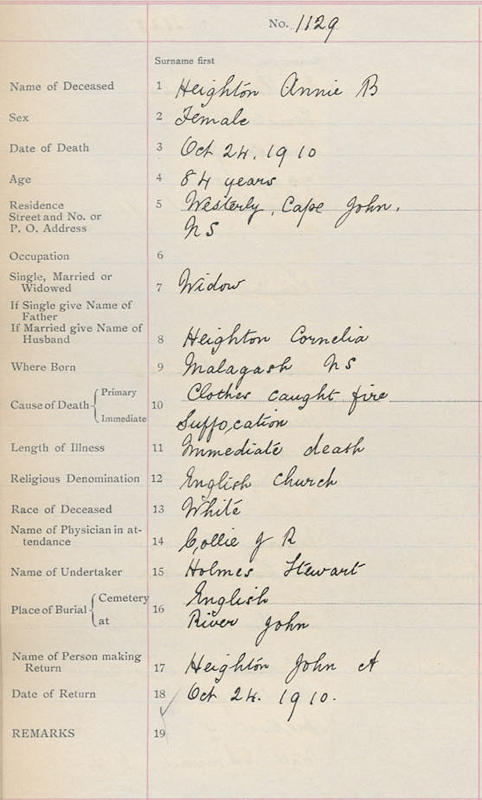 No. 1129
Surname first
Name of Deceased 1 Heighton Annie B
Sex 2 Female
Date of Death 3 Oct 24. 1910
Age 4 84 years
Residence 5 Westerly, Cape John,
Street and No. or
P. O. Address NS
Occupation 6
Single, Married or
Widowed 7 Widow
If Single give Name of
Father
If Married give Name of
Husband 8 Heighton Cornelia
Where Born 9 Malagash NS
Cause of Death { Primary 10 Clothes caught fire
Immediate Suffocation
Length of Illness 11 Immediate death
Religious Denomination 12 English Church
Race of Deceased 13 White
Name of Physician in at-
tendance 14 Collie J R
Name of Undertaker 15 Holmes Stewart
Place of Burial { Cemetery 16 English
at River John
Name of Person making
Return 17 Heighton John A
Date of Return 18 Oct 24. 1910.
REMARKS 19